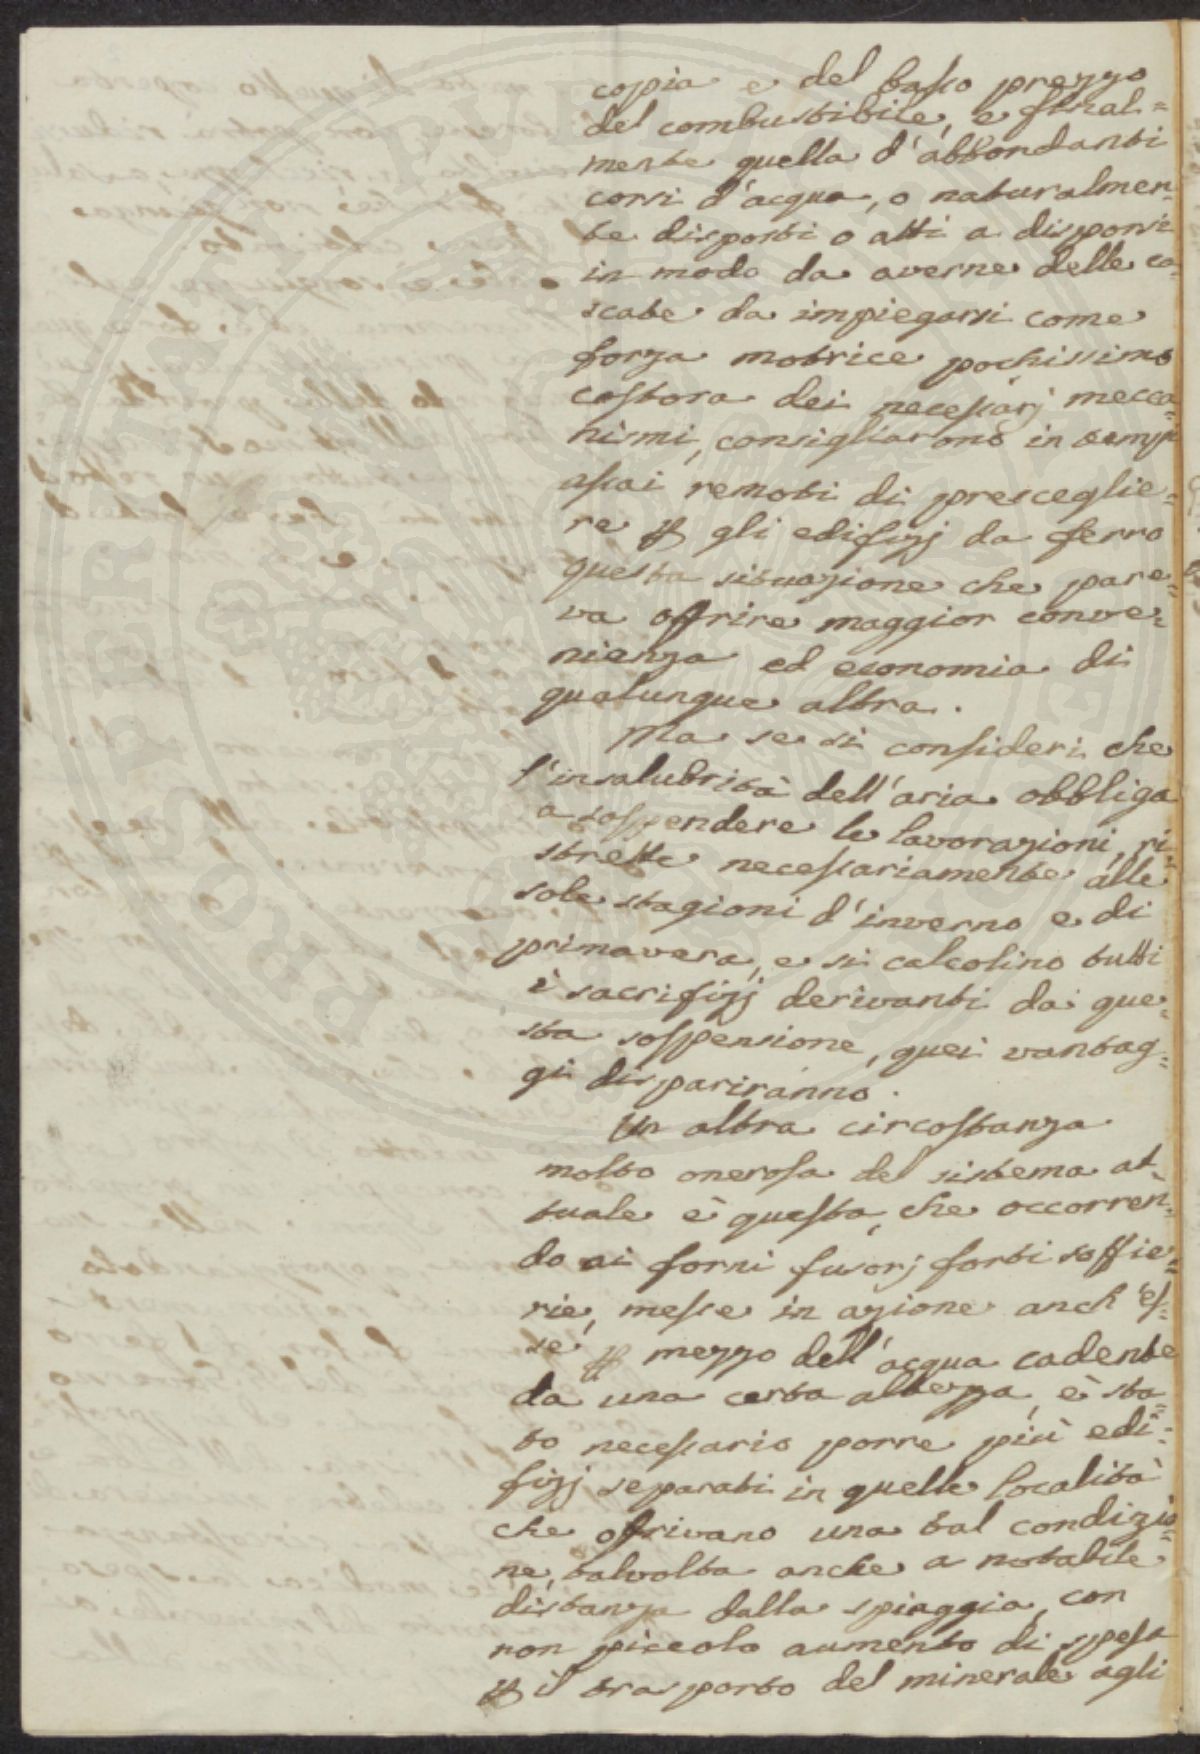 copia e del basso prezzo
del combustibile, e final=
mente quella d'abbondanti
corsi d'acqua, o naturalmen=
te disposti o atti a disporsi
in modo da averne delle ca=
scate da impiegarsi come
forza motrice pochissimo
costosa dei necessarj mecca=
nismi, consigliarono in tempi
assai remoti di presceglie=
re gli edifizj da ferro
questa situazione che pare=
va offrire maggior conve=
nienza ed economia di
qualunque altra.
Ma se si consideri che
l'insalubrità dell'aria obbliga
a sospendere le lavorazioni, ri=
strette necessariamente alle
sole stagioni d'inverno e di
primavera, e si calcolino tutti
i sacrifizj derivanti da que=
sta sospensione, quei vantag=
gi dispariranno.
Un altra circostanza
molto onerosa del sistema at=
tuale è questa, che occorren=
do ai forni fusorj forti soffie=
rie, messe in azione anch'es=
se mezzo dell'acqua cadente
da una certa altezza, è sta=
to necessario porre più edi=
fizj separati in quelle località
che offrivano una tal condizio=
ne, talvolta anche a notabile
distanza dalla spiaggia, con
non piccolo aumento di spesa
il trasporto del minerale agli
PROSPERITATI PVBLICAE